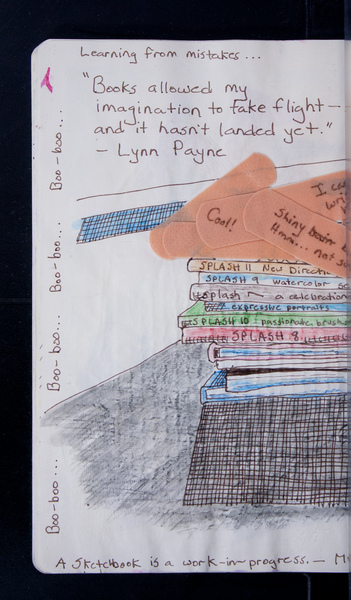 Learning from mistakes...
"Books allowed my
imagination to take flight —
and it hasn't landed yet."
— Lynn Payne
Boo-boo...
Boo-boo...
Boo-boo...
Boo-boo...
Cool!
Shiny brain
Hmm... not
SPLASH 11 New Directi
SPLASH 9 watercolor
Splash a celebration
expressive portraits
SPLASH 10: passionate brushes
SPLASH 8
A Sketchbook is a work-in-progress. —